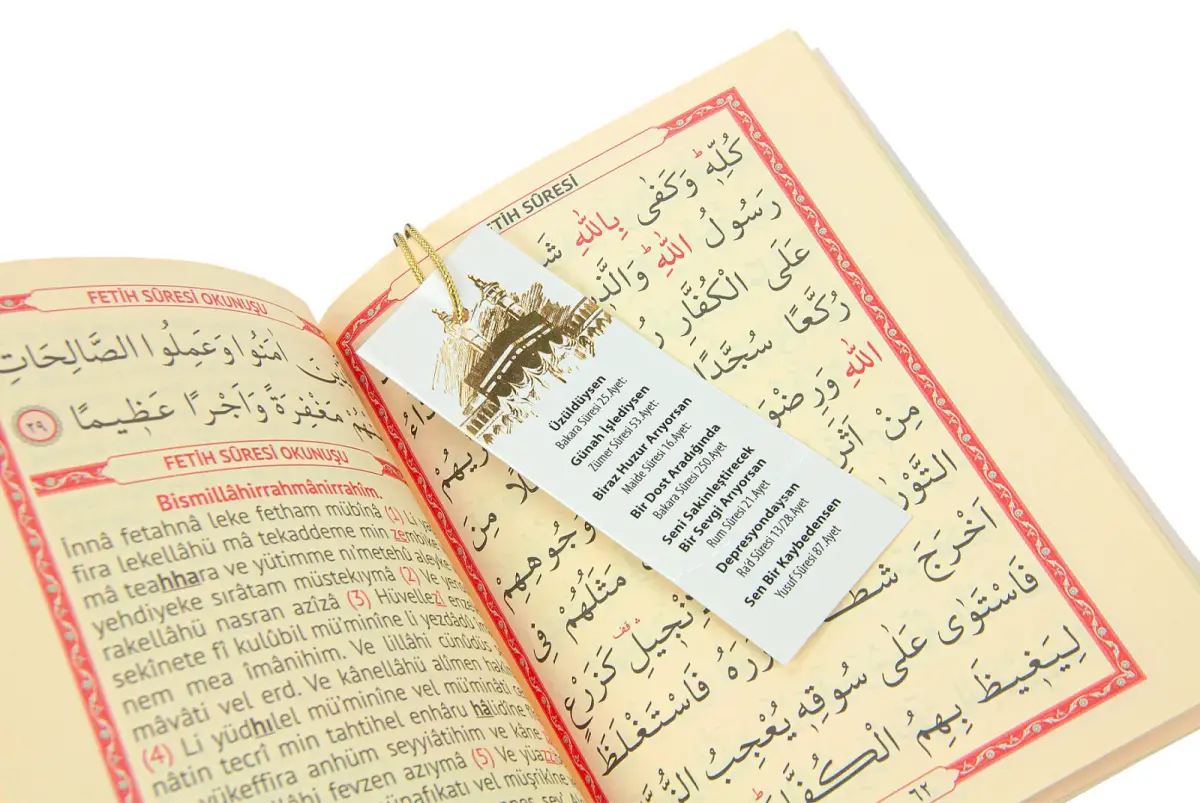 FETİH SÛRESİ OKUNUŞU
اٰمَنُوا وَعَمِلُوا الصَّالِحَاتِ
مَغْفِرَةً وَاَجْرًا عَظٖيمًا ٢٩
FETİH SÛRESİ OKUNUŞU
Bismillâhirrahmânirrahîm.
İnnâ fetahnâ leke fetham mübînâ (1) Li
fira lekellâhü mâ tekaddeme min zembike
mâ teahhara ve yütimme ni'metehû aleyke
yehdiyeke sırâtam müstekıymâ (2) Ve
rakellâhü nasran azîzâ (3) Hüvellezî enzele
sekînete fî kulûbil mü'minîne li yezdâdû
nem mea îmânihim. Ve lillâhi cünûdüs
mâvâti vel erd. Ve kânellâhü alîmen
(4) Li yüdhılel mü'minîne vel mü'minâti
nâtin tecrî min tahtihel enhâru hâlidîne
yükeffira anhüm seyyiâtihim ve kâne
fevzen azıymâ (5) Ve
vel müşrikîne
FETİH SÛRESİ
كُلِّهٖ وَكَفٰى بِاللّٰهِ
رَسُولُ اللّٰهِ وَالَّذ
عَلَى الْكُفَّارِ
رُكَّعًا سُجَّدًا
اللّٰهِ وَرِضْوَ
مِنْ اَثَرِ
وُجُوهِهِمْ مِنْ
التَّوْرٰ
مَثَلُهُمْ فِي
اَخْرَجَ شَطْ
نْجٖيلِ كَزَرْعٍ
فَاسْتَغْلَظَ
فَاسْتَوٰى عَلٰى سُوقِهٖ يُعْجِبُ
لِيَغٖيظَ بِهِمُ الْكُفَّارَ
٦٢
Üzüldüysen
Bakara Sûresi 25.Ayet:
Günah İşlediysen
Zümer Sûresi 53.Ayet:
Biraz Huzur Arıyorsan
Maide Sûresi 16.Ayet:
Bir Dost Aradığında
Bakara Sûresi 250.Ayet
Seni Sakinleştirecek
Bir Sevgi Arıyorsan
Rum Sûresi 21.Ayet
Depresyondaysan
Ra'd Sûresi 13/28.Ayet
Sen Bir Kaybedensen
Yusuf Sûresi 87.Ayet